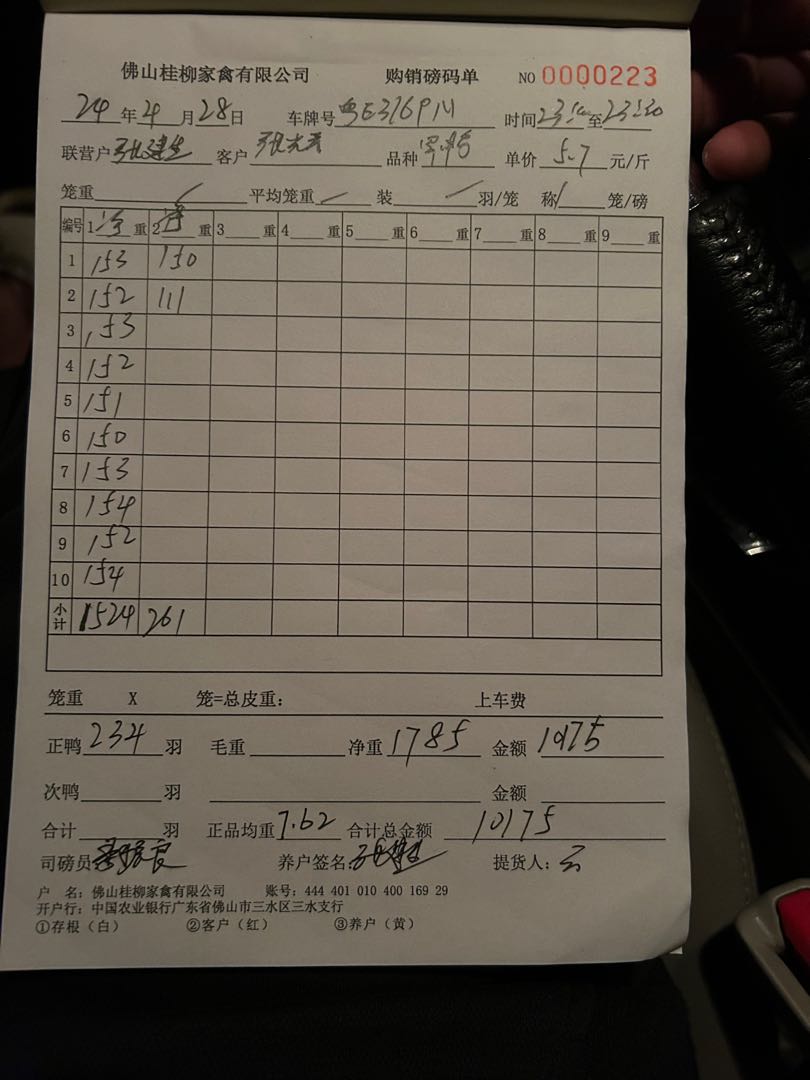 佛山桂柳家禽有限公司 购销磅码单 NO 0000223
24 年 4 月 28 日 车牌号 粤E376PM 时间 23:00 至 23:30
联营户 客户 品种 单价 5.7 元/斤
笼重 平均笼重 装 羽/笼 称 笼/磅
编号 1 重 2 重 3 重 4 重 5 重 6 重 7 重 8 重 9 重
1 153 150
2 152 111
3 153
4 152
5 151
6 150
7 153
8 154
9 152
10 154
小计 1524 261
笼重 X 笼=总皮重: 上车费
正鸭 234 羽 毛重 净重 1785 金额 10175
次鸭 羽 金额
合计 羽 正品均重 7.62 合计总金额 10175
司磅员 养户签名: 提货人: 云
户 名: 佛山桂柳家禽有限公司 账号: 444 401 010 400 169 29
开户行: 中国农业银行广东省佛山市三水区三水支行
①存根（白） ②客户（红） ③养户（黄）